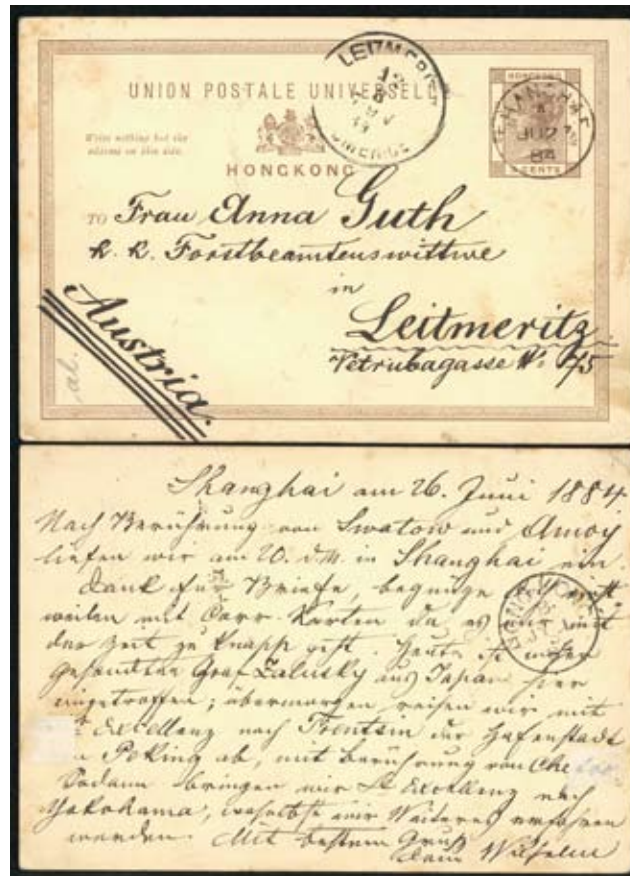 UNION POSTALE UNIVERSELLE
LEITMERITZ
Write nothing but the
address on this side.
HONGKONG
HONGKONG
SHANGHAE
84
CENTS
TO Frau Anna Guth
k. k. Forstbeamtenswittwe
in
Leitmeritz
Vetrubagasse N. 175
Austria.
al.
Shanghai am 26. Juni 1884
Nach Berührung von Swatow und Amoy
liefen wir am 20. d.M. in Shanghai ein.
Dank für Briefe, begnüge
weilen mit Corr. Karten da es mir mit
der Zeit zu knapp geht. Heute ist unser
Gesandter Graf Zalusky aus Japan hier
eingetroffen; übermorgen reisen wir mit
Excellenz nach Tientsin der Hafenstadt
Peking ab, mit Berührung von Che
Sodann bringen wir Se Excellenz nach
Yokohama, woselbst wir Weiteres erfahren
werden. Mit bestem Gruß
Dein Wilhelm